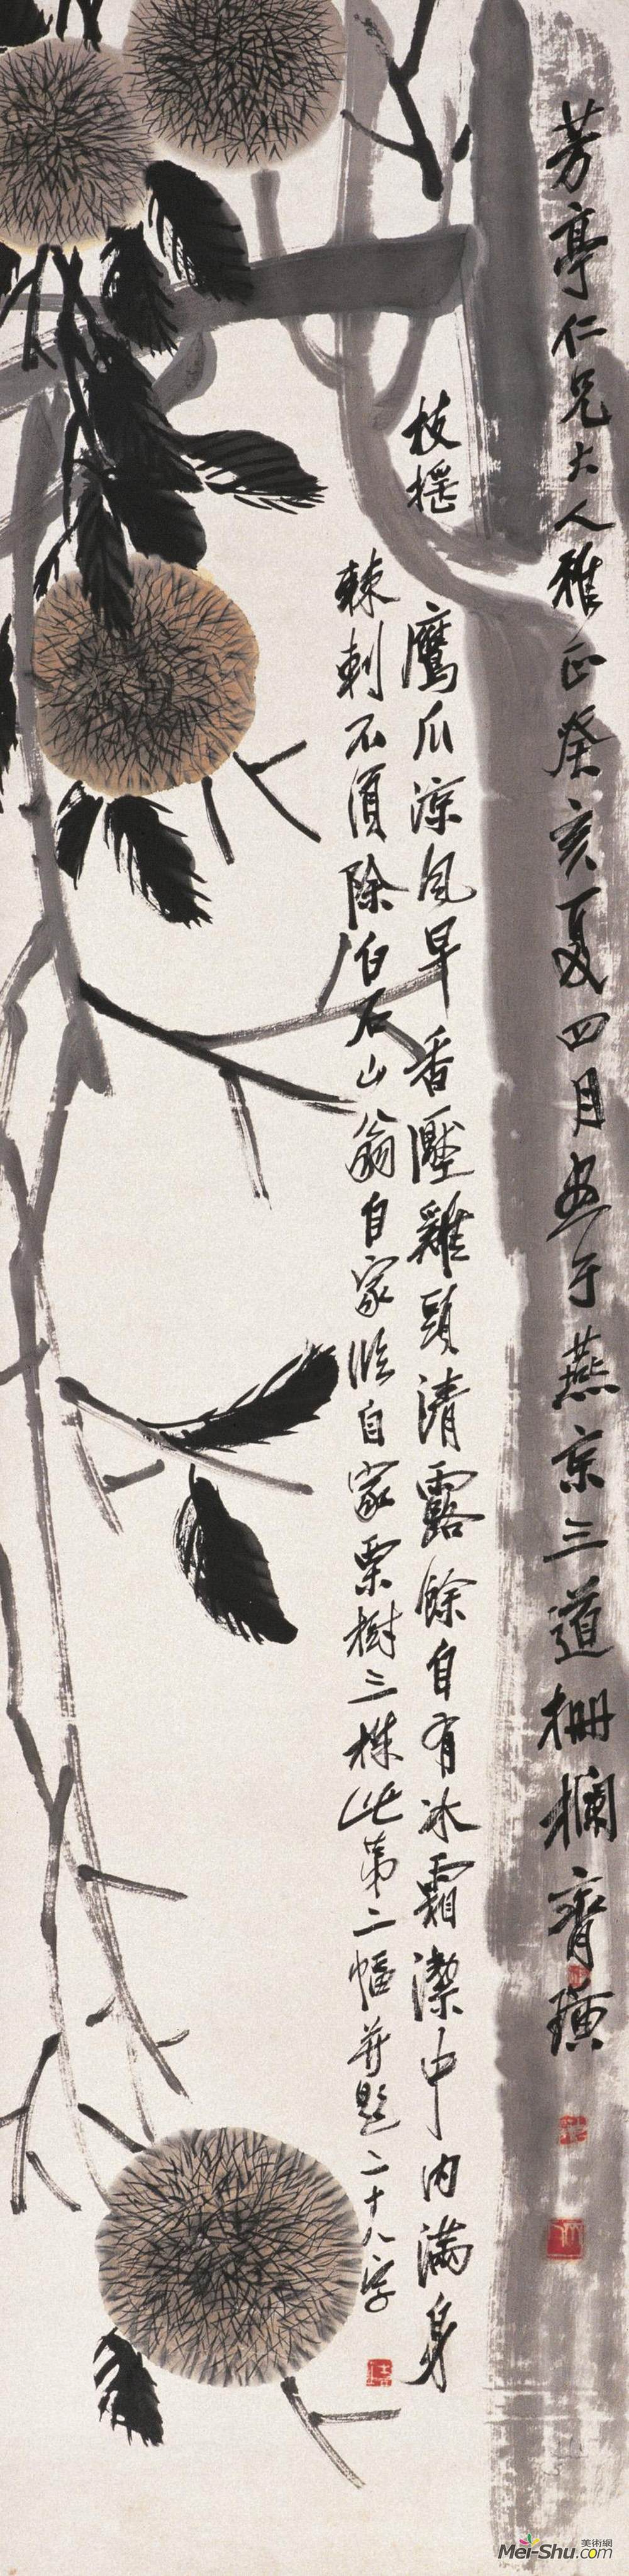 芳亭仁兄大人雅正癸亥夏四月畫于燕京三道栅欄齊璜
枝摇鷹爪涼風早香壓雞頭清露餘自有冰霜潔中内滿身
棘刺不須除白石山翁自家臨自家栗樹三株此第二幅并題二十八字
美術網
Mei-Shu.com